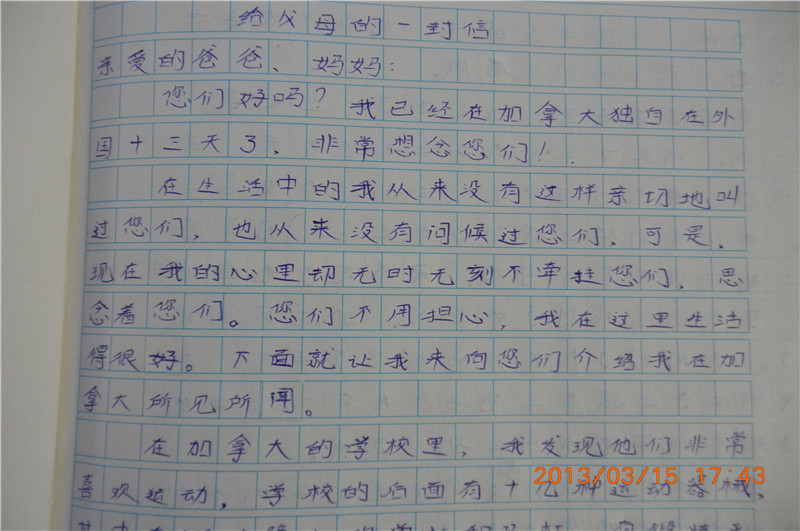 给父母的一封信
亲爱的爸爸、妈妈:
您们好吗?我已经在加拿大独自在外
国十三天了,非常想念您们!.
在生活中的我从来没有过样亲切地叫
过您们,也从来没有问候过您们,可是,
现在我的心里却无时无刻不牵挂您们,思
念着您们。您们不用担心,我在这里生活
得很好。下面就让我来向您们介绍我在加
拿大所见所闻。
在加拿大的学校里,我发现他们非常
喜欢运动,学校的后面有十几种运动器械,
2013/03/15 17:43